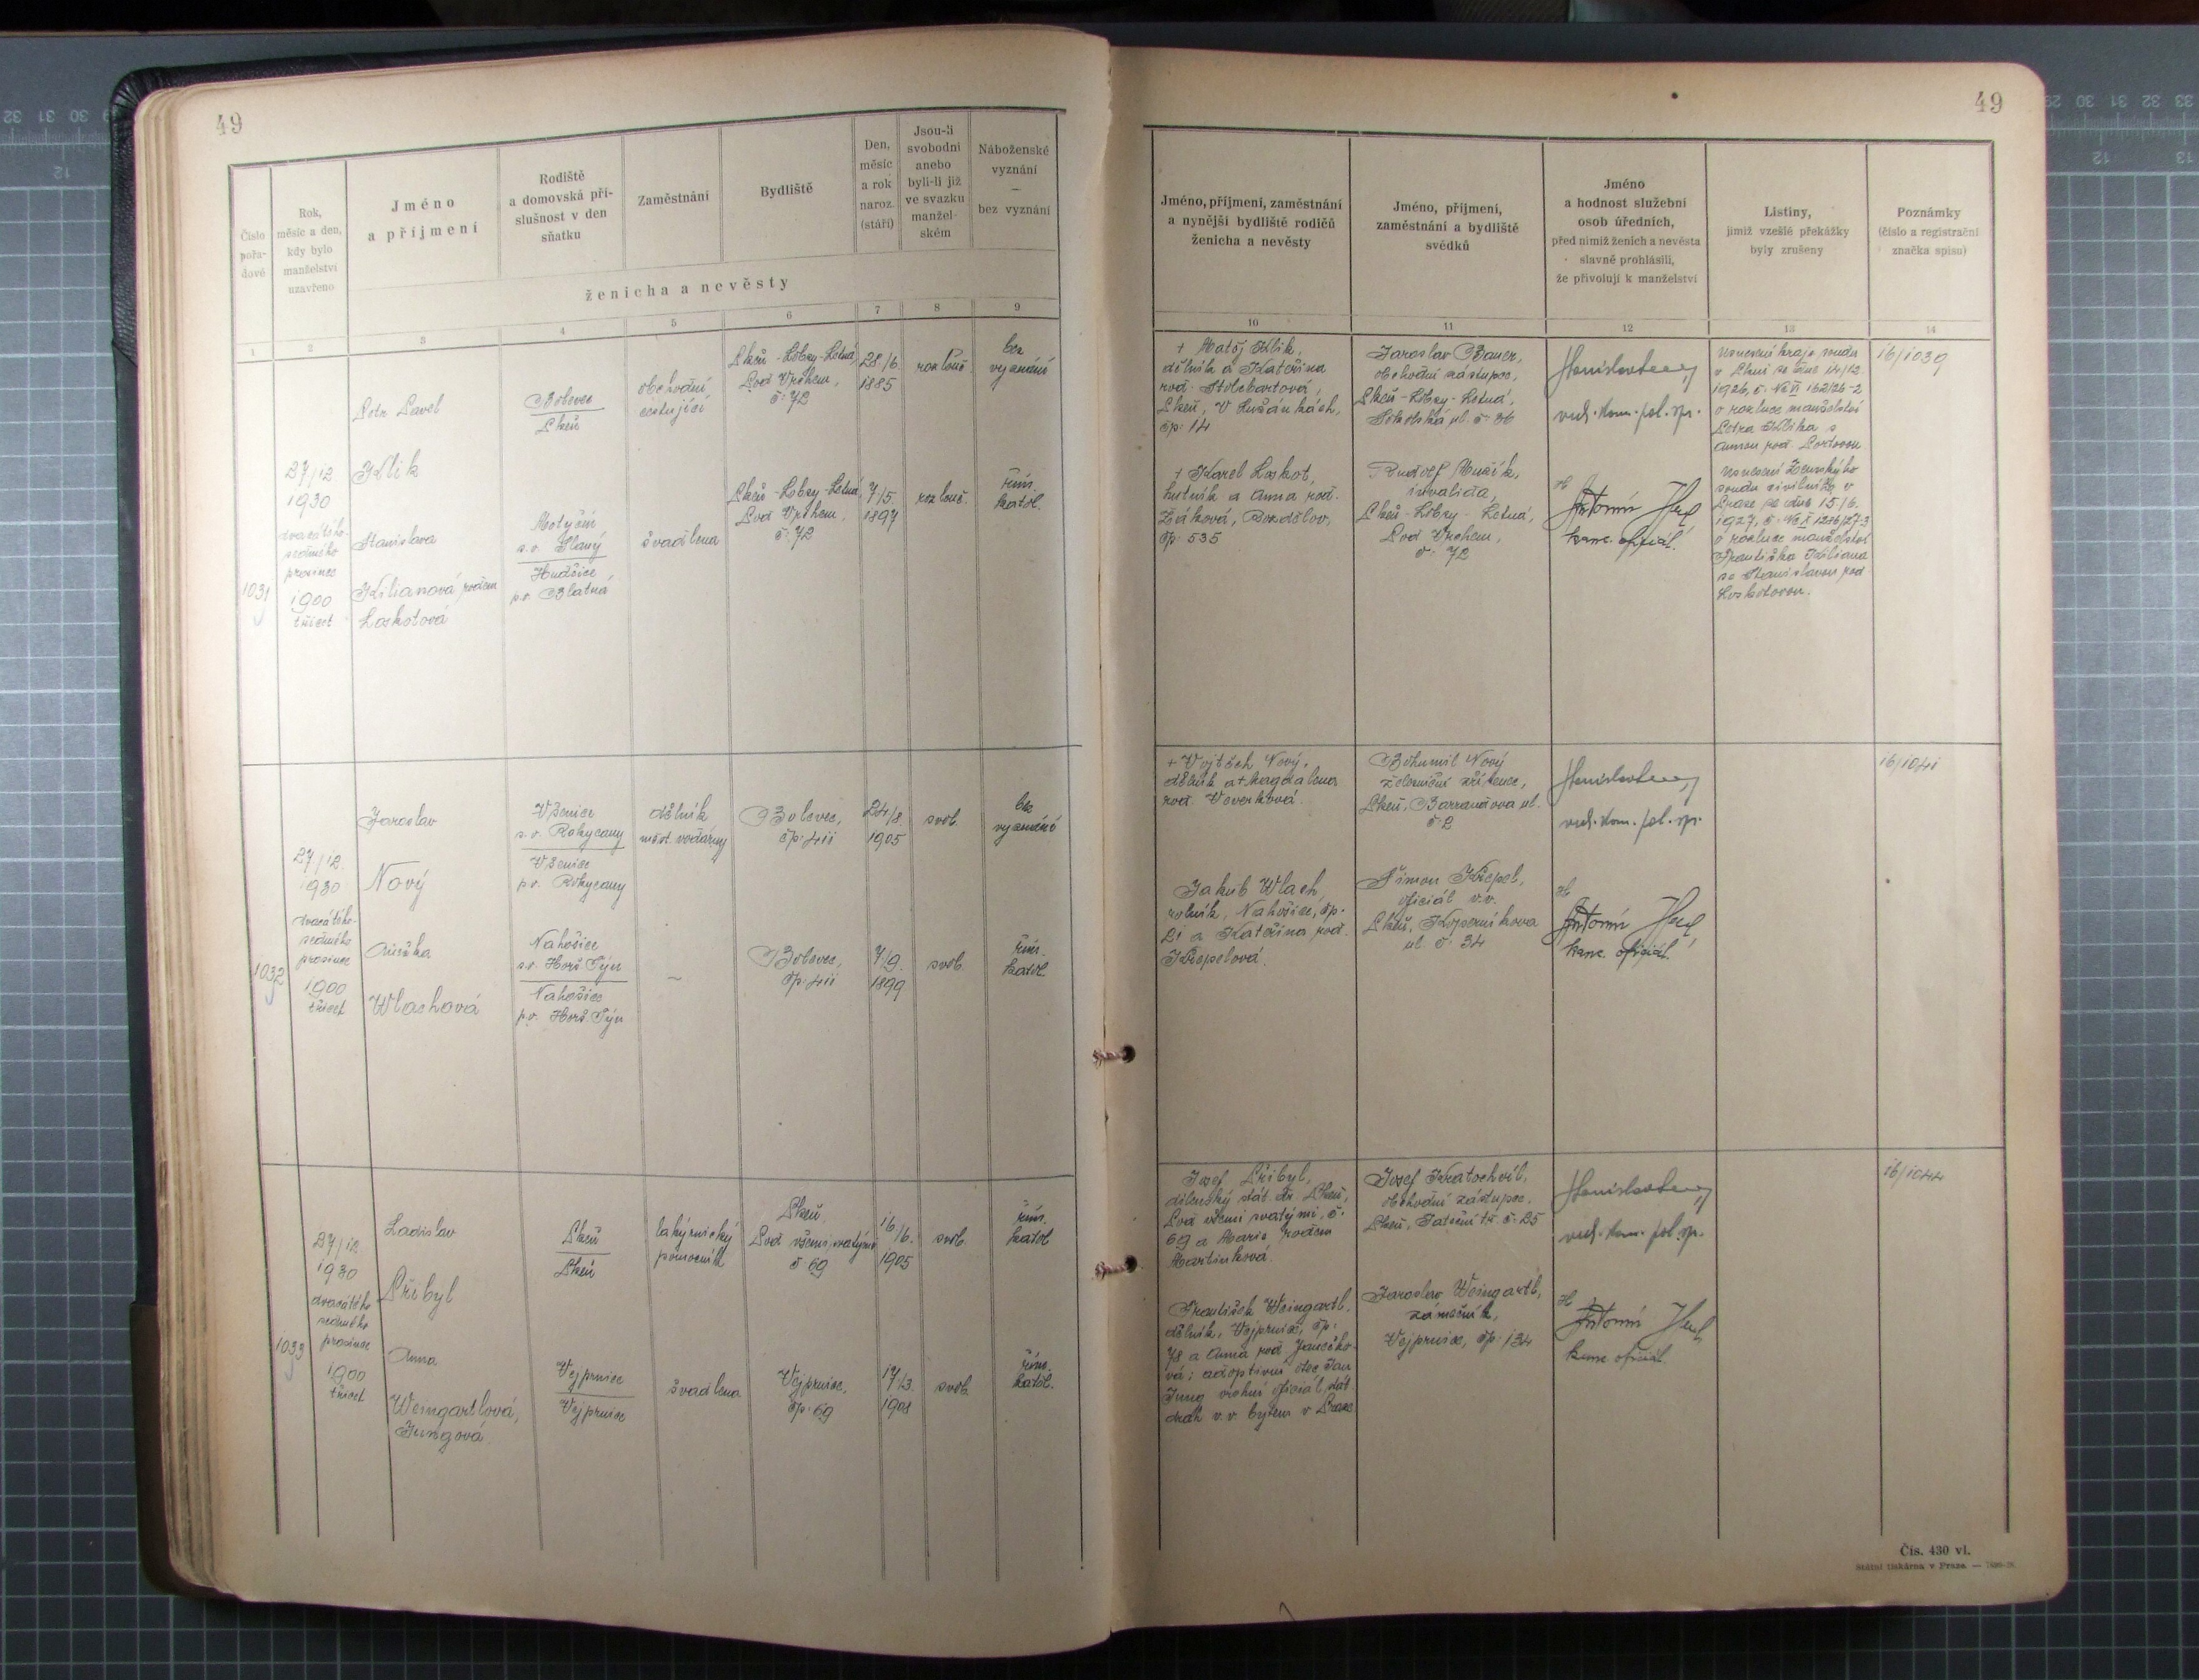 49
Číslo pořadové
Rok, měsíc a den, kdy bylo manželství uzavřeno
Jméno a příjmení
Rodiště a domovská příslušnost v den sňatku
Zaměstnání
Bydliště
Den, měsíc a rok naroz. (stáří)
Jsou-li svobodni anebo byli-li již ve svazku manželském
Náboženské vyznání — bez vyznání
ženicha a nevěsty
1 2 3 4 5 6 7 8 9
1031
27/12.
1930
dvacátého-
sedmého
prosince
1900
třicet
Petr Pavel
Klik
Bolevec
Plzeň
obchodní
cestující
Plzeň-Lobzy-Letná,
Pod Vrchem,
č. 72
28/6.
1885
rozlouč.
bez
vyznání
Stanislava
Kilianová rodem
Loskotová
Motyčín
s.o. Slaný
Hudčice
p.o. Blatná
švadlena
Plzeň-Lobzy-Letná,
Pod Vrchem,
č. 72
7/5.
1897
rozlouč.
řím.
katol.
1032
27/12.
1930
dvacátého-
sedmého
prosince
1900
třicet
Jaroslav
Nový
Vženice
s.o. Rokycany
Vženice
p.o. Rokycany
dělník
měst. vodárny
Bolevec,
čp. 411
24/8.
1905
svob.
bez
vyznání
Anežka
Wlachová
Nahošice
s.o. Horš Týn
Nahošice
p.o. Horš Týn
—
Bolevec,
čp. 411
7/9.
1899
svob.
řím.
katol.
1033
27/12.
1930
dvacátého-
sedmého
prosince
1900
třicet
Ladislav
Přibyl
Plzeň
Plzeň
lakýrnický
pomocník
Plzeň,
Pod všemi svatými
č 69
16/6.
1905
svob.
řím.
katol
Anna
Weingartlová,
Jungová.
Vejprnice
Vejprnice
švadlena
Vejprnice,
čp. 69
17/3.
1908
svob.
řím.
katol.
49
Jméno, příjmení, zaměstnání a nynější bydliště rodičů ženicha a nevěsty
Jméno, příjmení, zaměstnání a bydliště svědků
Jméno a hodnost služební osob úředních, před nimiž ženich a nevěsta slavně prohlásili, že přivolují k manželství
Listiny, jimiž vzešlé překážky byly zrušeny
Poznámky (číslo a registrační značka spisu)
10 11 12 13 14
+ Matěj Klik,
dělník a Kateřina
rod. Stolcbartová,
Plzeň, V Lužánkách,
čp. 14
Jaroslav Bauer,
obchodní zástupce,
Plzeň-Lobzy-Letná,
Sokolská ul. č. 36
vrch. kom. pol. spr.
Usnesení kraje. soudu
v Plzni ze dne 14/12.
1926, č. Nc VI 162/26-2
o rozluce manželství
Petra Klika s
Annou rod.
16/1039
+ Karel Loskot,
hutník a Anna rod.
Žáková, Bozděchov,
čp. 535
Rudolf Mužík,
invalida,
Plzeň-Lobzy-Letná,
Pod Vrchem,
č. 72
Antonín
kanc. oficiál.
Usnesení Zemského
soudu civilního v
Praze ze dne 15/6.
1927, č. Nc X 1286/27-3
o rozluce manželství
Františka Kiliana
se Stanislavou rod
Loskotovou.
+ Vojtěch Nový,
dělník a + Magdalena
rod. Veverková.
Bohumil Nový
železniční zřízenec,
Plzeň, Barrandova ul.
č. 2
vrch. kom. pol. spr.
16/1041
Jakub Wlach,
rolník, Nahošice, čp.
21 a Kateřina rod.
Křepelová.
Šimon Křepel,
oficiál v.v.
Plzeň, Koperníkova
ul. č. 34
Antonín
kanc. oficiál.
Josef Přibyl,
dílenský stát. dr. Plzeň,
Pod všemi svatými, č.
69 a Marie rodem
Martínková.
Josef Kratochvíl,
obchodní zástupce,
Plzeň, tř. č. 25
vrch. kom. pol. spr.
16/1044
František Weingartl,
dělník, Vejprnice, čp.
78 a Anna rod Janečko-
vá; adoptivní otec Jan
Jung vrchní oficiál stát
drah v.v. bytem v Praze
Jaroslav Weingartl,
zámečník,
Vejprnice, čp. 134
Antonín
kanc. oficiál.
Čís. 430 vl.
Státní tiskárna v Praze —